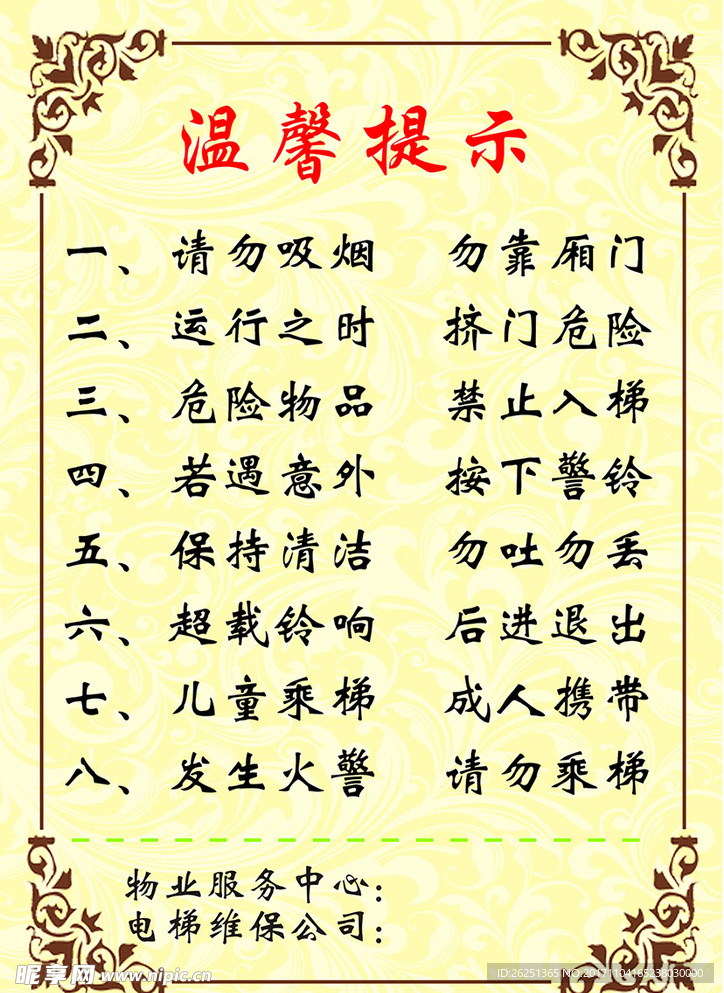 温馨提示
一、请勿吸烟 勿靠厢门
二、运行之时 挤门危险
三、危险物品 禁止入梯
四、若遇意外 按下警铃
五、保持清洁 勿吐勿丢
六、超载铃响 后进退出
七、儿童乘梯 成人携带
八、发生火警 请勿乘梯
物业服务中心：
电梯维保公司：
昵享网 www.nipic.cn
ID:26251365 NO:20171104165238030000